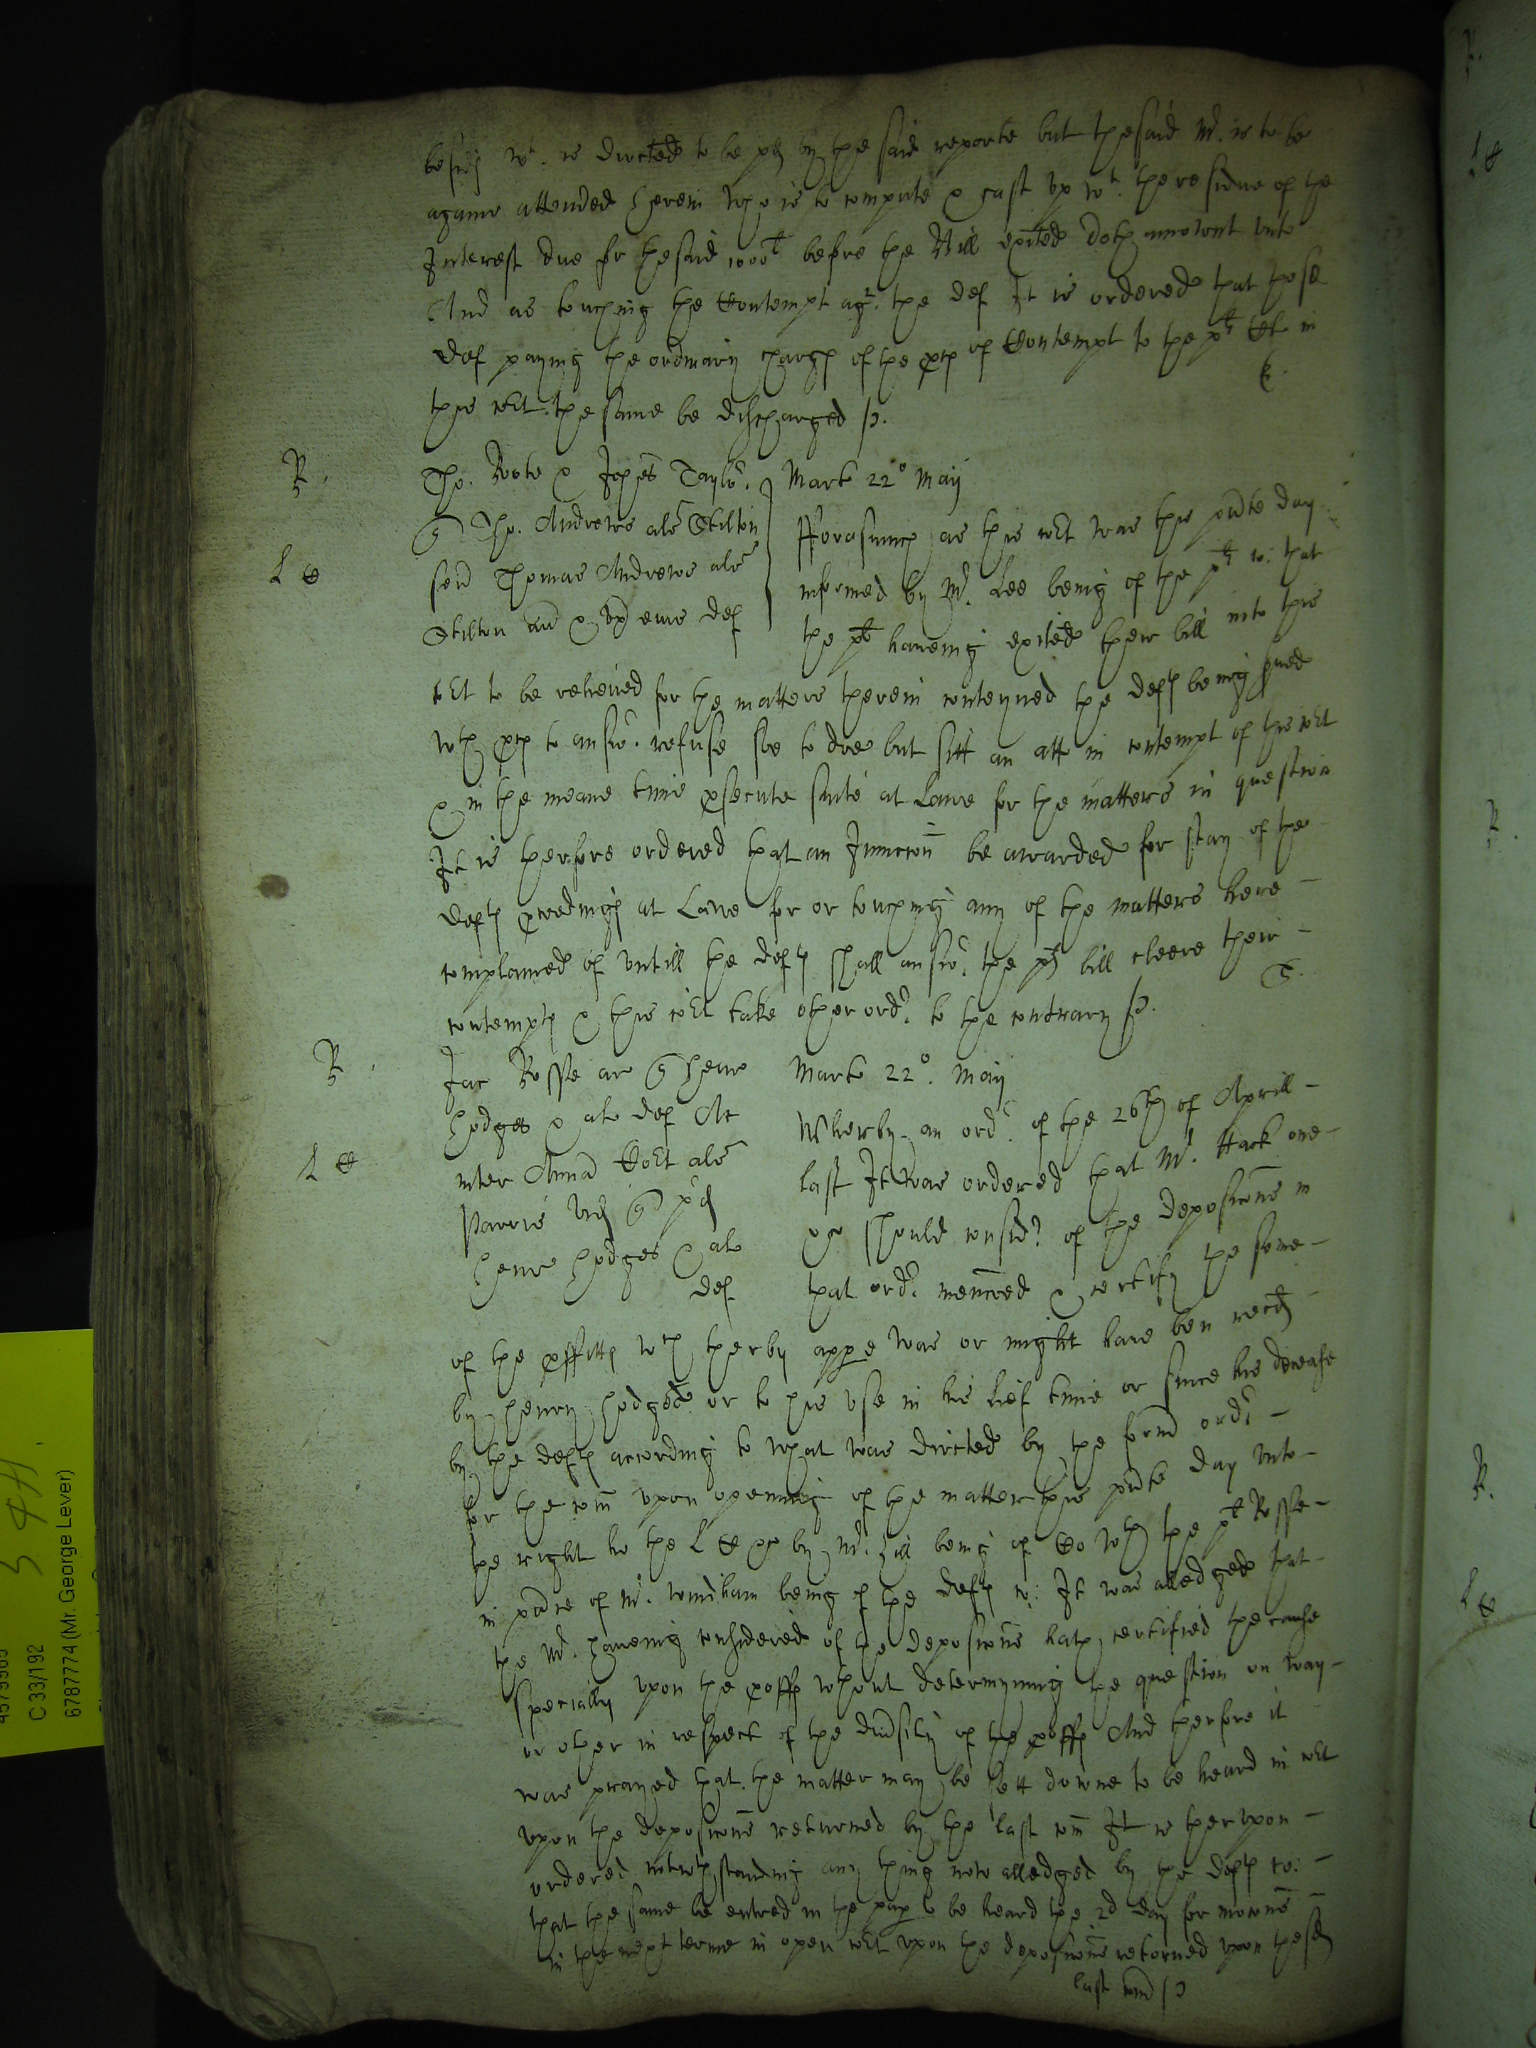 besids wch. is directed to be pd by the said reporte but the said Mr. is to be
againe attended herein who is to compute & cast up wt. the residue of the
Interest due for the said 1000l before the Bill exited doth amount unto
And as touching the Contempt agt. the def It is ordered that those
def paying the ordinary chargs of the pces of Contempt to the plt Cl in
this cort. the same be discharged /.
R.
Tho. Boote & James Taylor. Marte 22o May
Tho. Andrewes als Stilton Forasmuch as this cort was this pnte day
L C
sen Thomas Andrewes als informed by Mr. Lee being of the plts co: that
Stilton & ux eius def the plts haveing exited their bill into this
cort to be releived for the matters therein conteyned the defts being served
wth pces to answr. refuse soe to doe but sitt an att in contempt of this cort
& in the meane time psecute suite at Lawe for the matters in question
It is therfore ordered that an Iniunccon be awarded for stay of the
defts pceedings at Lawe for or touching any of the matters here
complained of untill the defts shall answr. the plts bill cleere their
contempts & this cort take other ordr. to the contrary /.
R.
Jac Rosse ar Henr Marte 22o. May
Hodges & al def At Wherby an ordr. of the 26th of Aprill
L C
inter Anna als last It was ordered that Mr. Hark one
Parris vid q should considr. of the deposicons in
Henr Hodges & al that ordr. mencoed & certify the some
def
of the pffitts wch therby appe was or might have ben recd
by Henry Hodges or to his use in his lief time or since his decease
by the defts according to what was directed by the form ordr
for the com upon opening of the matter this pnte day unto
the right ho the L C by Mr. being of Co wth the plt Rosse
in pnce of Mr. Windham being of the defts co: It was alledged that
the Mr. haveing considered of the deposicons hath certified the cause
specially upon the poffs wthout determyning the question on way
or other in respect of the diusity of the poffs And therfore it
was prayed that the matter may be sett downe to be heard in cort
upon the deposicons returned by the last com It is therupon
ordered notwthstanding any thing now alledged by the defts co:
that the same be entred in the pap to be heard the 2d day for mocons
in the next terme in open cort upon the deposicons retorned upon the sd
last com /.
S 4 H
C 33/192
6787774 (Mr. George Lever)